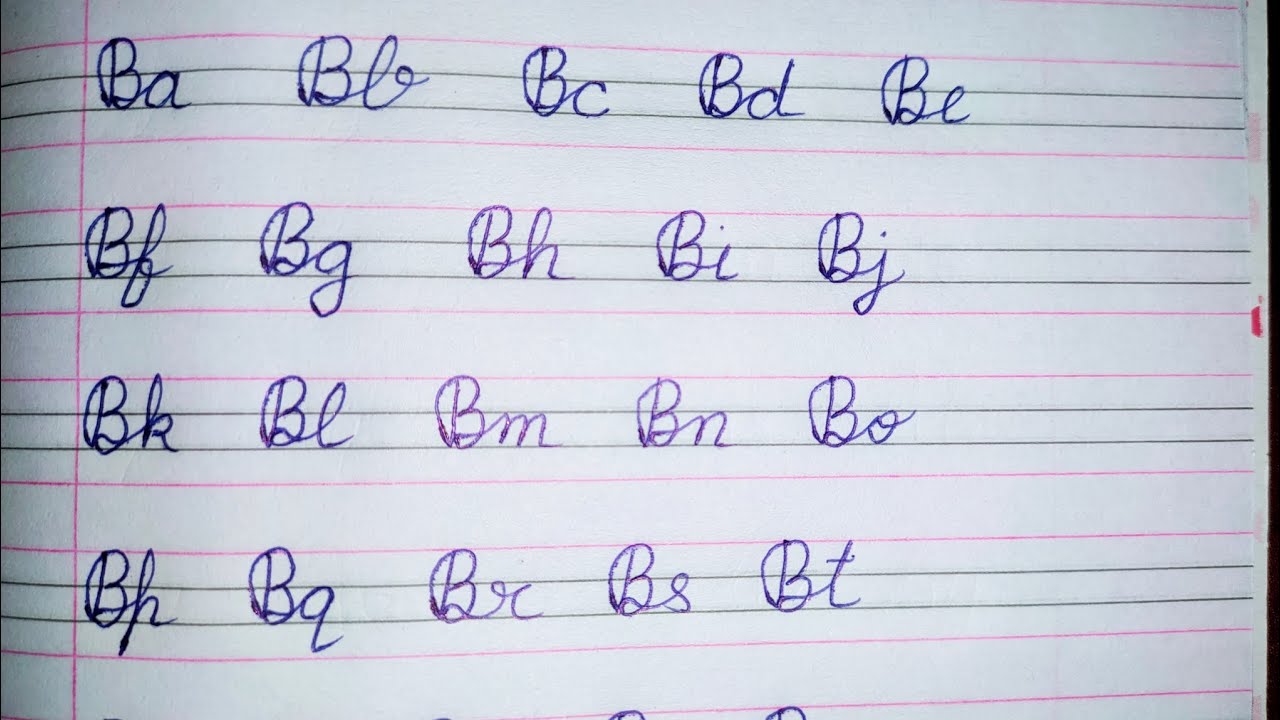 Ba Bb Bc Bd Be
Bf Bg Bh Bi Bj
Bk Bl Bm Bn Bo
Bp Bq Br Bs Bt